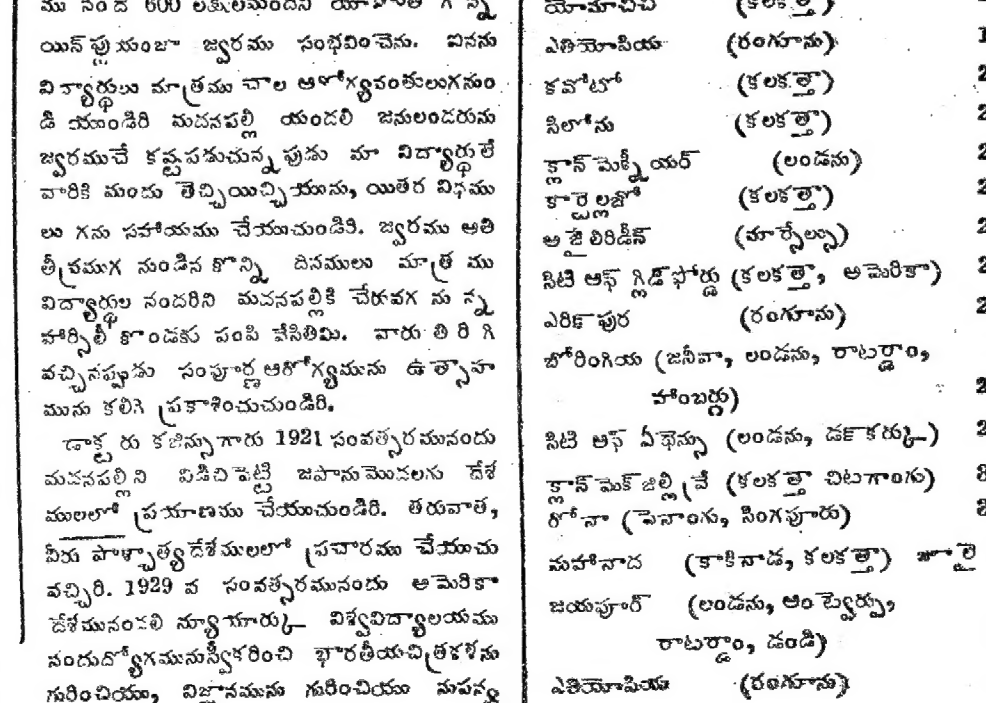 యిన్‌ఫ్లుయంజా జ్వరము సంభవించెను. ఐనను
విద్యార్థులు మాత్రము చాల ఆరోగ్యవంతులుగనుం
డి యుండిరి మదనపల్లి యందలి జనులందరును
జ్వరముచే కష్టపడుచున్నప్పుడు మా విద్యార్థులే
వారికి మందు తెచ్చియిచ్చియును, యితర విధము
లుగను సహాయము చేయుచుండిరి. జ్వరము అతి
తీవ్రముగ నుండిన కొన్ని దినములు మాత్రము
విద్యార్థుల నందరిని మదనపల్లికి చేరువగ నున్న
హార్సిలీ కొండకు పంపి వేసితిమి. వారు తిరిగి
వచ్చినప్పుడు సంపూర్ణ ఆరోగ్యమును ఉత్సాహ
మును కలిగి ప్రకాశించుచుండిరి.
డాక్టరు కజిన్సుగారు 1921 సంవత్సరమునందు
మదనపల్లిని విడిచిపెట్టి జపాను మొదలగు దేశ
ములలో ప్రయాణము చేయుచుండిరి. తరువాత,
వీరు పాశ్చాత్య దేశములలో ప్రచారము చేయుచు
వచ్చిరి. 1929 వ సంవత్సరమునందు అమెరికా
దేశమునందలి న్యూయార్కు విశ్వవిద్యాలయము
నందుద్యోగమునుస్వీకరించి భారతీయచిత్రకళను
గురించియు, విజ్ఞానమును గురించియు నుపన్య
యోమాచిచి (కలకత్తా)
ఎతియోపియ (రంగూను)
కవోటో (కలకత్తా)
సిలోను (కలకత్తా)
క్లాన్ మెక్నీయర్ (లండను)
కార్పెల్లజో (కలకత్తా)
అజైలిరిడీన్ (మార్సేల్సు)
సిటి ఆఫ్ గ్లిడ్‌ఫోర్డు (కలకత్తా, అమెరికా)
ఎరికాపుర (రంగూను)
బోరింగియ (జనీవా, లండను, రాటర్డాం,
హాంబర్గు)
సిటి ఆఫ్ ఏథెన్సు (లండను, డక్‌కర్కు)
క్లాన్ మెక్‌జిల్లివ్రే (కలకత్తా చిటగాంగు)
రోనా (పెనాంగు, సింగపూరు)
మహానాద (కాకినాడ, కలకత్తా) జూలై
జయపూర్ (లండను, ఆంట్వెర్పు,
రాటర్డాం, డండి)
ఎతియోపియ (రంగూను)